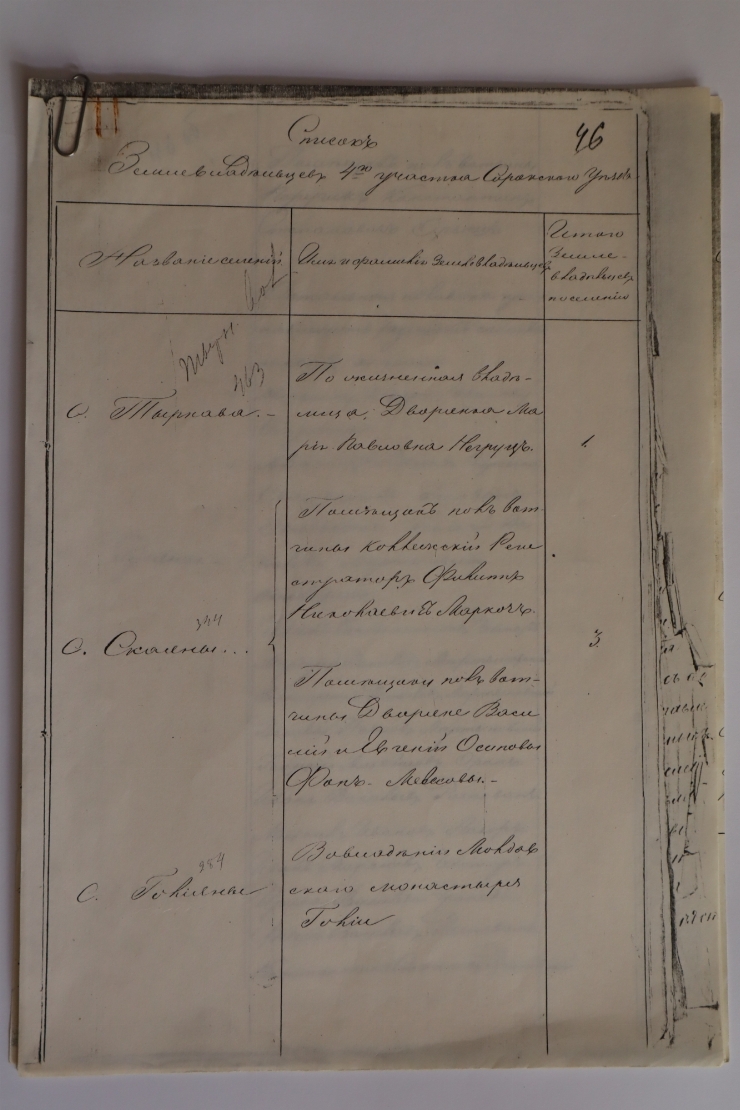 46
Списокъ
Землевладѣльцевъ 4го участка Сорокскаго Уѣзда
Названіе селеній
Имя и фамилія Землевладѣльцевъ
Итого
Земле-
владѣльцевъ
поселенія
463
С. Тырнава. -
По жизненная владѣ-
лица, Дворянка Ма
рія Павловна Негруцъ.
1.
344
С. Скаяны...
Помѣщикъ полъ вот-
чины Коллежскій Реги
страторъ Филиппъ
Николаевичъ Маркочъ.
3.
Помѣщики полъ вот-
чины Дворяне Васи
лій и Евгеній Осиповы
Фонъ-Мевесовы. -
284
С. Голіяны
Во владѣніи Молдов
скаго монастыря
Голіи